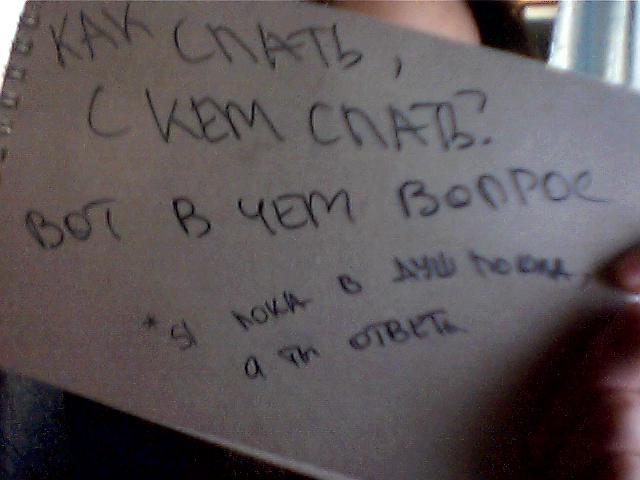 КАК СПАТЬ,
С КЕМ СПАТЬ?
ВОТ В ЧЕМ ВОПРОС
* Я ПОКА В ДУШ ПОШЛА,
а ты ОТВЕТЬ